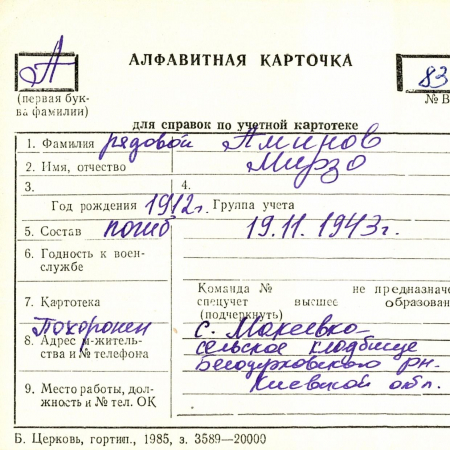 А
АЛФАВИТНАЯ КАРТОЧКА
83
(первая бук-
ва фамилии)
№ В
для справок по учетной картотеке
1. Фамилия рядовой Аминов
2. Имя, отчество Мирзо
3. 4.
Год рождения 1912г. Группа учета
5. Состав погиб 19.11.1943г.
6. Годность к воен-
службе
Команда № не предназначе
7. Картотека спецучет высшее образован
(подчеркнуть)
Похоронен с. Макеевка-
8. Адрес м-житель-
ства и № телефона
сельское кладбище
Белоцерковского рн.
9. Место работы, дол-
жность и № тел. ОК
Киевской обл.
Б. Церковь, гортип., 1985, з. 3589—20000